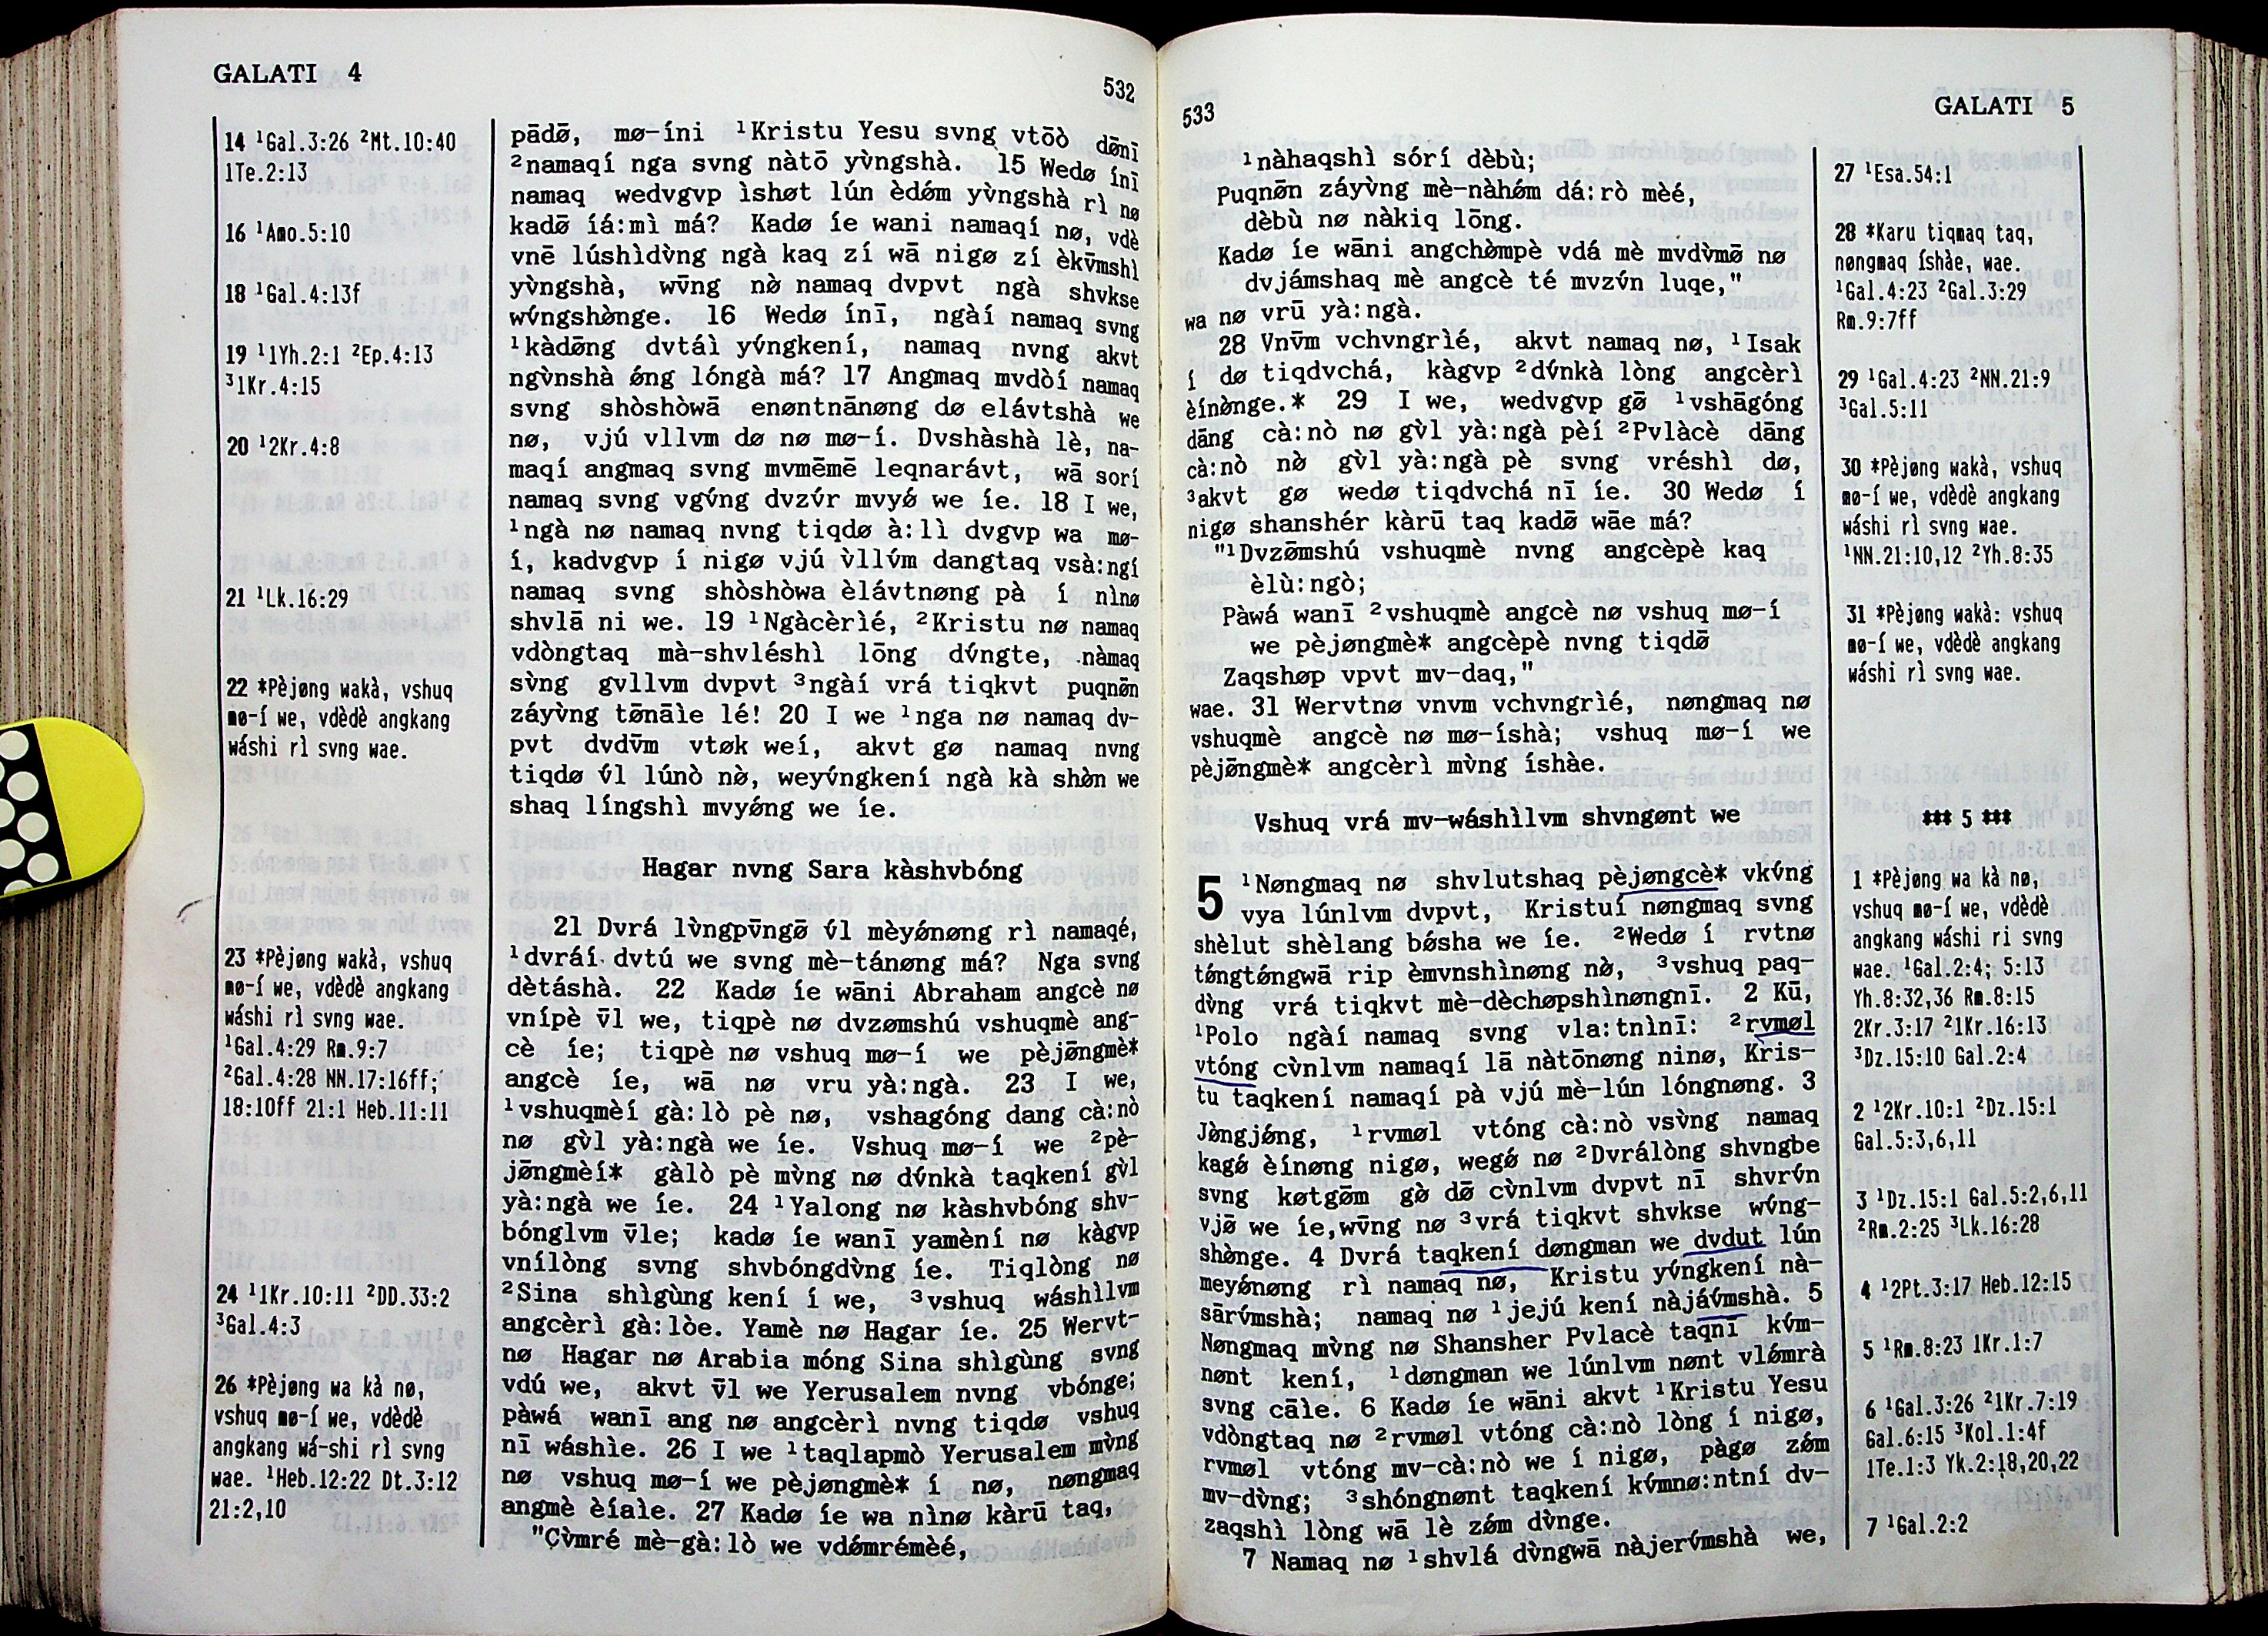 GALATI 4
532
14 ¹Gal.3:26 ²Mt.10:40
1Te.2:13
16 ¹Amo.5:10
18 ¹Gal.4:13f
19 ¹1Yh.2:1 ²Ep.4:13
³1Kr.4:15
20 ¹2Kr.4:8
21 ¹Lk.16:29
22 *Pèjøng wakà, vshuq
mø-í we, vdèdè angkang
wáshi rì svng wae.
23 *Pèjøng wakà, vshuq
mø-í we, vdèdè angkang
wáshi rì svng wae.
¹Gal.4:29 Rm.9:7
²Gal.4:28 NN.17:16ff;
18:10ff 21:1 Heb.11:11
24 ¹1Kr.10:11 ²DD.33:2
³Gal.4:3
26 *Pèjøng wa kà nø,
vshuq mø-í we, vdèdè
angkang wá-shi rì svng
wae. ¹Heb.12:22 Dt.3:12
21:2,10
pādø̄, mø-íni ¹Kristu Yesu svng vtōò dø̄nī
²namaqí nga svng nàtō yv̀ngshà. 15 Wedø ínī
namaq wedvgvp ìshøt lún èdǿm yv̀ngshà rì nø
kadø̄ íá:mì má? Kadø íe wani namaqí nø, vdè
vnē lúshìdv̀ng ngà kaq zí wā nigø zí èkv̄mshì
yv̀ngshà, wv̄ng nø̀ namaq dvpvt ngà shvkse
wv́ngshø̀nge. 16 Wedø ínī, ngàí namaq svng
¹kàdø̄ng dvtáì yv́ngkení, namaq nvng akvt
ngv̀nshà ǿng lóngà má? 17 Angmaq mvdòí namaq
svng shòshòwā enøntnānøng dø elávtshà we
nø, vjú vllvm dø nø mø-í. Dvshàshà lè, na-
maqí angmaq svng mvmēmē leqnarávt, wā sorí
namaq svng vgv́ng dvzv́r mvyǿ we íe. 18 I we,
¹ngà nø namaq nvng tiqdø à:lì dvgvp wa mø-
í, kadvgvp í nigø vjú v̀llv́m dangtaq vsà:ngí
namaq svng shòshòwa èlávtnøng pà í nìnø
shvlā ni we. 19 ¹Ngàcèrìé, ²Kristu nø namaq
vdòngtaq mà-shvléshì lōng dv́ngte, nàmaq
sv̀ng gvllvm dvpvt ³ngàí vrá tiqkvt puqnø̄n
záyv̀ng tø̄nāìe lé! 20 I we ¹nga nø namaq dv-
pvt dvdv̄m vtøk weí, akvt gø namaq nvng
tiqdø v́l lúnò nø̀, weyv́ngkení ngà kà shø̀n we
shaq língshì mvyǿng we íe.
Hagar nvng Sara kàshvbóng
21 Dvrá lv̀ngpv̄ngø̄ v́l mèyǿnøng rì namaqé,
¹dvráí dvtú we svng mè-tánøng má? Nga svng
dètáshà. 22 Kadø íe wāni Abraham angcè nø
vnípè v̄l we, tiqpè nø dvzømshú vshuqmè ang-
cè íe; tiqpè nø vshuq mø-í we pèjø̄ngmè*
angcè íe, wā nø vru yà:ngà. 23 I we,
¹vshuqmèí gà:lò pè nø, vshagóng dang cà:nò
nø gv̀l yà:ngà we íe. Vshuq mø-í we ²pè-
jø̄ngmèí* gàlò pè mv̀ng nø dv́nkà taqkení gv̀l
yà:ngà we íe. 24 ¹Yalong nø kàshvbóng shv-
bónglvm v̄le; kadø íe wanī yamèní nø kàgvp
vnílòng svng shvbóngdv̀ng íe. Tiqlòng nø
²Sina shìgùng kení í we, ³vshuq wáshìlvm
angcèrì gà:lòe. Yamè nø Hagar íe. 25 Wervt-
nø Hagar nø Arabia móng Sina shìgùng svng
vdú we, akvt v̄l we Yerusalem nvng vbónge;
pàwá wanī ang nø angcèrì nvng tiqdø vshuq
nī wáshìe. 26 I we ¹taqlapmò Yerusalem mv̀ng
nø vshuq mø-í we pèjøngmè* í nø, nøngmaq
angmè èíaìe. 27 Kadø íe wa nìnø kàrū taq,
"Çv̀mré mè-gà:lò we vdǿmrémèé,
533
GALATI 5
¹nàhaqshì sórí dèbù;
Puqnø̄n záyv̀ng mè-nàhǿm dá:rò mèé,
dèbù nø nàkiq lōng.
Kadø íe wāni angchø̀mpè vdá mè mvdv̀mø̄ nø
dvjámshaq mè angcè té mvzv́n luqe,"
wa nø vrū yà:ngà.
28 Vnv̄m vchvngrìé, akvt namaq nø, ¹Isak
í dø tiqdvchá, kàgvp ²dv́nkà lòng angcèrì
èínø̀nge.* 29 I we, wedvgvp gø̄ ¹vshāgóng
dāng cà:nò nø gv̀l yà:ngà pèí ²Pvlàcè dāng
cà:nò nø̀ gv̀l yà:ngà pè svng vréshì dø,
³akvt gø wedø tiqdvchá nī íe. 30 Wedø í
nigø shanshér kàrū taq kadø̄ wāe má?
"¹Dvzø̄mshú vshuqmè nvng angcèpè kaq
èlù:ngò;
Pàwá wanī ²vshuqmè angcè nø vshuq mø-í
we pèjøngmè* angcèpè nvng tiqdø̄
Zaqshøp vpvt mv-daq,"
wae. 31 Wervtnø vnvm vchvngrìé, nøngmaq nø
vshuqmè angcè nø mø-íshà; vshuq mø-í we
pèjø̄ngmè* angcèrì mv̀ng íshàe.
Vshuq vrá mv-wáshìlvm shvngønt we
5 ¹Nøngmaq nø shvlutshaq pèjøngcè* vkv́ng
vya lúnlvm dvpvt, Kristuí nøngmaq svng
shèlut shèlang bǿsha we íe. ²Wedø í rvtnø
tǿngtǿngwā rip èmvnshìnøng nø̀, ³vshuq paq-
dv̀ng vrá tiqkvt mè-dèchøpshìnøngnī. 2 Kū,
¹Polo ngàí namaq svng vla:tnìnī: ²rvmøl
vtóng cv̀nlvm namaqí lā nàtōnøng ninø, Kris-
tu taqkení namaqí pà vjú mè-lún lóngnøng. 3
Jø̀ngjǿng, ¹rvmøl vtóng cà:nò vsv̀ng namaq
kagǿ èínøng nigø, wegǿ nø ²Dvrálòng shvngbe
svng køtgø̄m gø̀ dø̄ cv̀nlvm dvpvt nī shvrv́n
vjø̄ we íe,wv̄ng nø ³vrá tiqkvt shvkse wv́ng-
shø̀nge. 4 Dvrá taqkení døngman we dvdut lún
meyǿnøng rì namaq nø, Kristu yv́ngkení nà-
sārv́mshà; namaq nø ¹jejú kení nàjáv́mshà. 5
Nøngmaq mv̀ng nø Shansher Pvlacè taqnī kv́m-
nønt kení, ¹døngman we lúnlvm nønt vlǿmrà
svng cāìe. 6 Kadø íe wāni akvt ¹Kristu Yesu
vdòngtaq nø ²rvmøl vtóng cà:nò lòng í nigø,
rvmøl vtóng mv-cà:nò we í nigø, pàgø zǿm
mv-dv̀ng; ³shóngnønt taqkení kv́mnø:ntní dv-
zaqshì lòng wā lè zǿm dv̀nge.
7 Namaq nø ¹shvlá dv̀ngwā nàjerv́mshà we,
27 ¹Esa.54:1
28 *Karu tiqmaq taq,
nøngmaq íshàe, wae.
¹Gal.4:23 ²Gal.3:29
Rm.9:7ff
29 ¹Gal.4:23 ²NN.21:9
³Gal.5:11
30 *Pèjøng wakà, vshuq
mø-í we, vdèdè angkang
wáshi rì svng wae.
¹NN.21:10,12 ²Yh.8:35
31 *Pèjøng wakà: vshuq
mø-í we, vdèdè angkang
wáshi rì svng wae.
*** 5 ***
1 *Pèjøng wa kà nø,
vshuq mø-í we, vdèdè
angkang wáshi ri svng
wae. ¹Gal.2:4; 5:13
Yh.8:32,36 Rm.8:15
2Kr.3:17 ²1Kr.16:13
³Dz.15:10 Gal.2:4
2 ¹2Kr.10:1 ²Dz.15:1
Gal.5:3,6,11
3 ¹Dz.15:1 Gal.5:2,6,11
²Rm.2:25 ³Lk.16:28
4 ¹2Pt.3:17 Heb.12:15
5 ¹Rm.8:23 1Kr.1:7
6 ¹Gal.3:26 ²1Kr.7:19
Gal.6:15 ³Kol.1:4f
1Te.1:3 Yk.2:18,20,22
7 ¹Gal.2:2